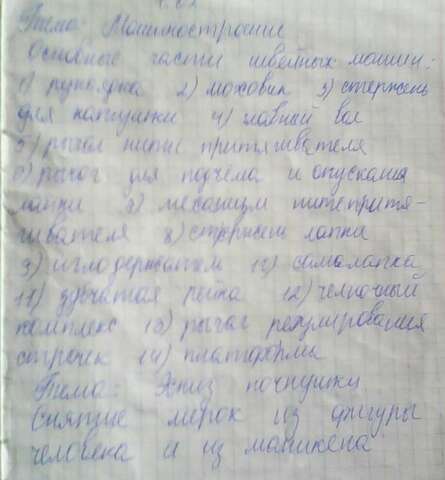 Тема: Машиностроение
Основные части швейных машин:
1) рукоядка 2) моховик 3) стержень
для катушки 4) главный вал
5) рычаг нитепритягивателя
6) рычаг для подъема и опускания
лапки 8) механизм нитепритя-
гивателя 8) стержень лапки
9) иглодержатель 10) сама лапка
11) зубчатая рейка 12) челночный
комплекс 13) рычаг регулирования
строчек 14) платформа
Тема: Эскиз
Снятие мерок из фигуры
человека и из маникена